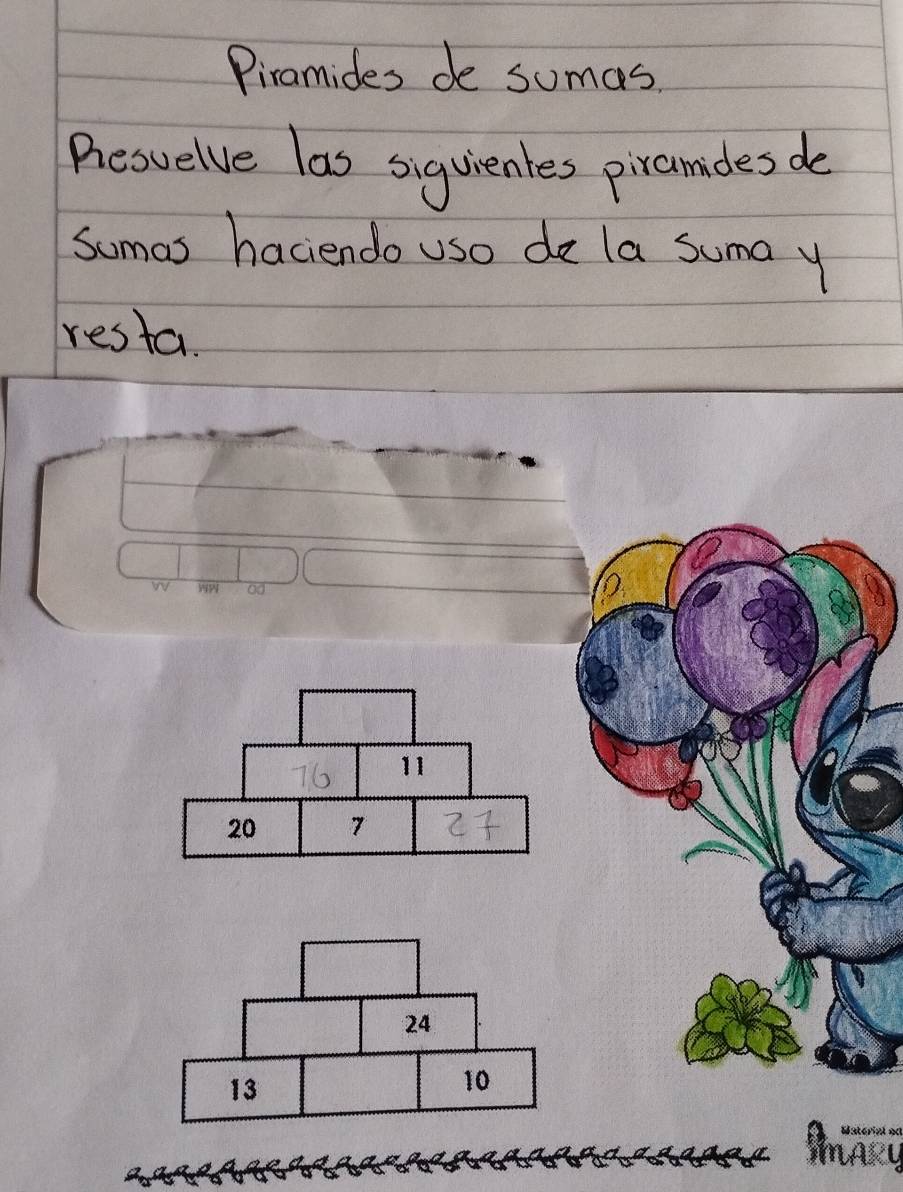 Piramides de sumas.
Resuelve las siguientes piramides de
sumas haciendo uso de la suma y
resta.
AA MM DD
16 11
20 7 27
24
13 10
Material
MARY